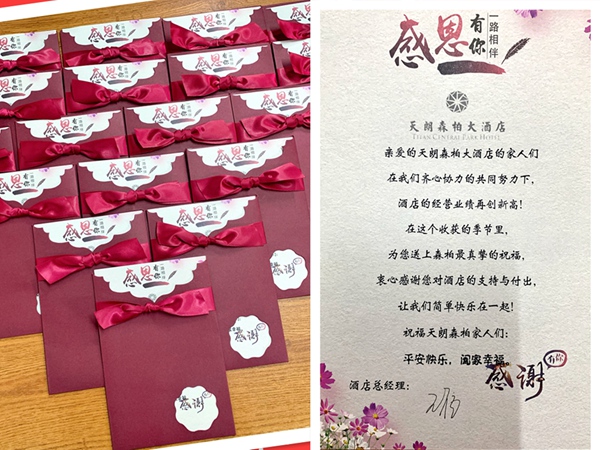 感恩有你
一路相伴
感谢
感恩有你
一路相伴
天朗森柏大酒店
TITAN CENTRAL PARK HOTEL
亲爱的天朗森柏大酒店的家人们
在我们齐心协力的共同努力下，
酒店的经营业绩再创新高！
在这个收获的季节里，
为您送上森柏最真挚的祝福，
衷心感谢您对酒店的支持与付出，
让我们简单快乐在一起！
祝福天朗森柏家人们：
平安快乐，阖家幸福
感谢有你
酒店总经理：